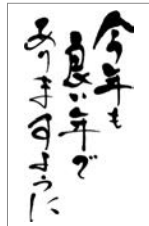 今年も
良い年で
ありますように